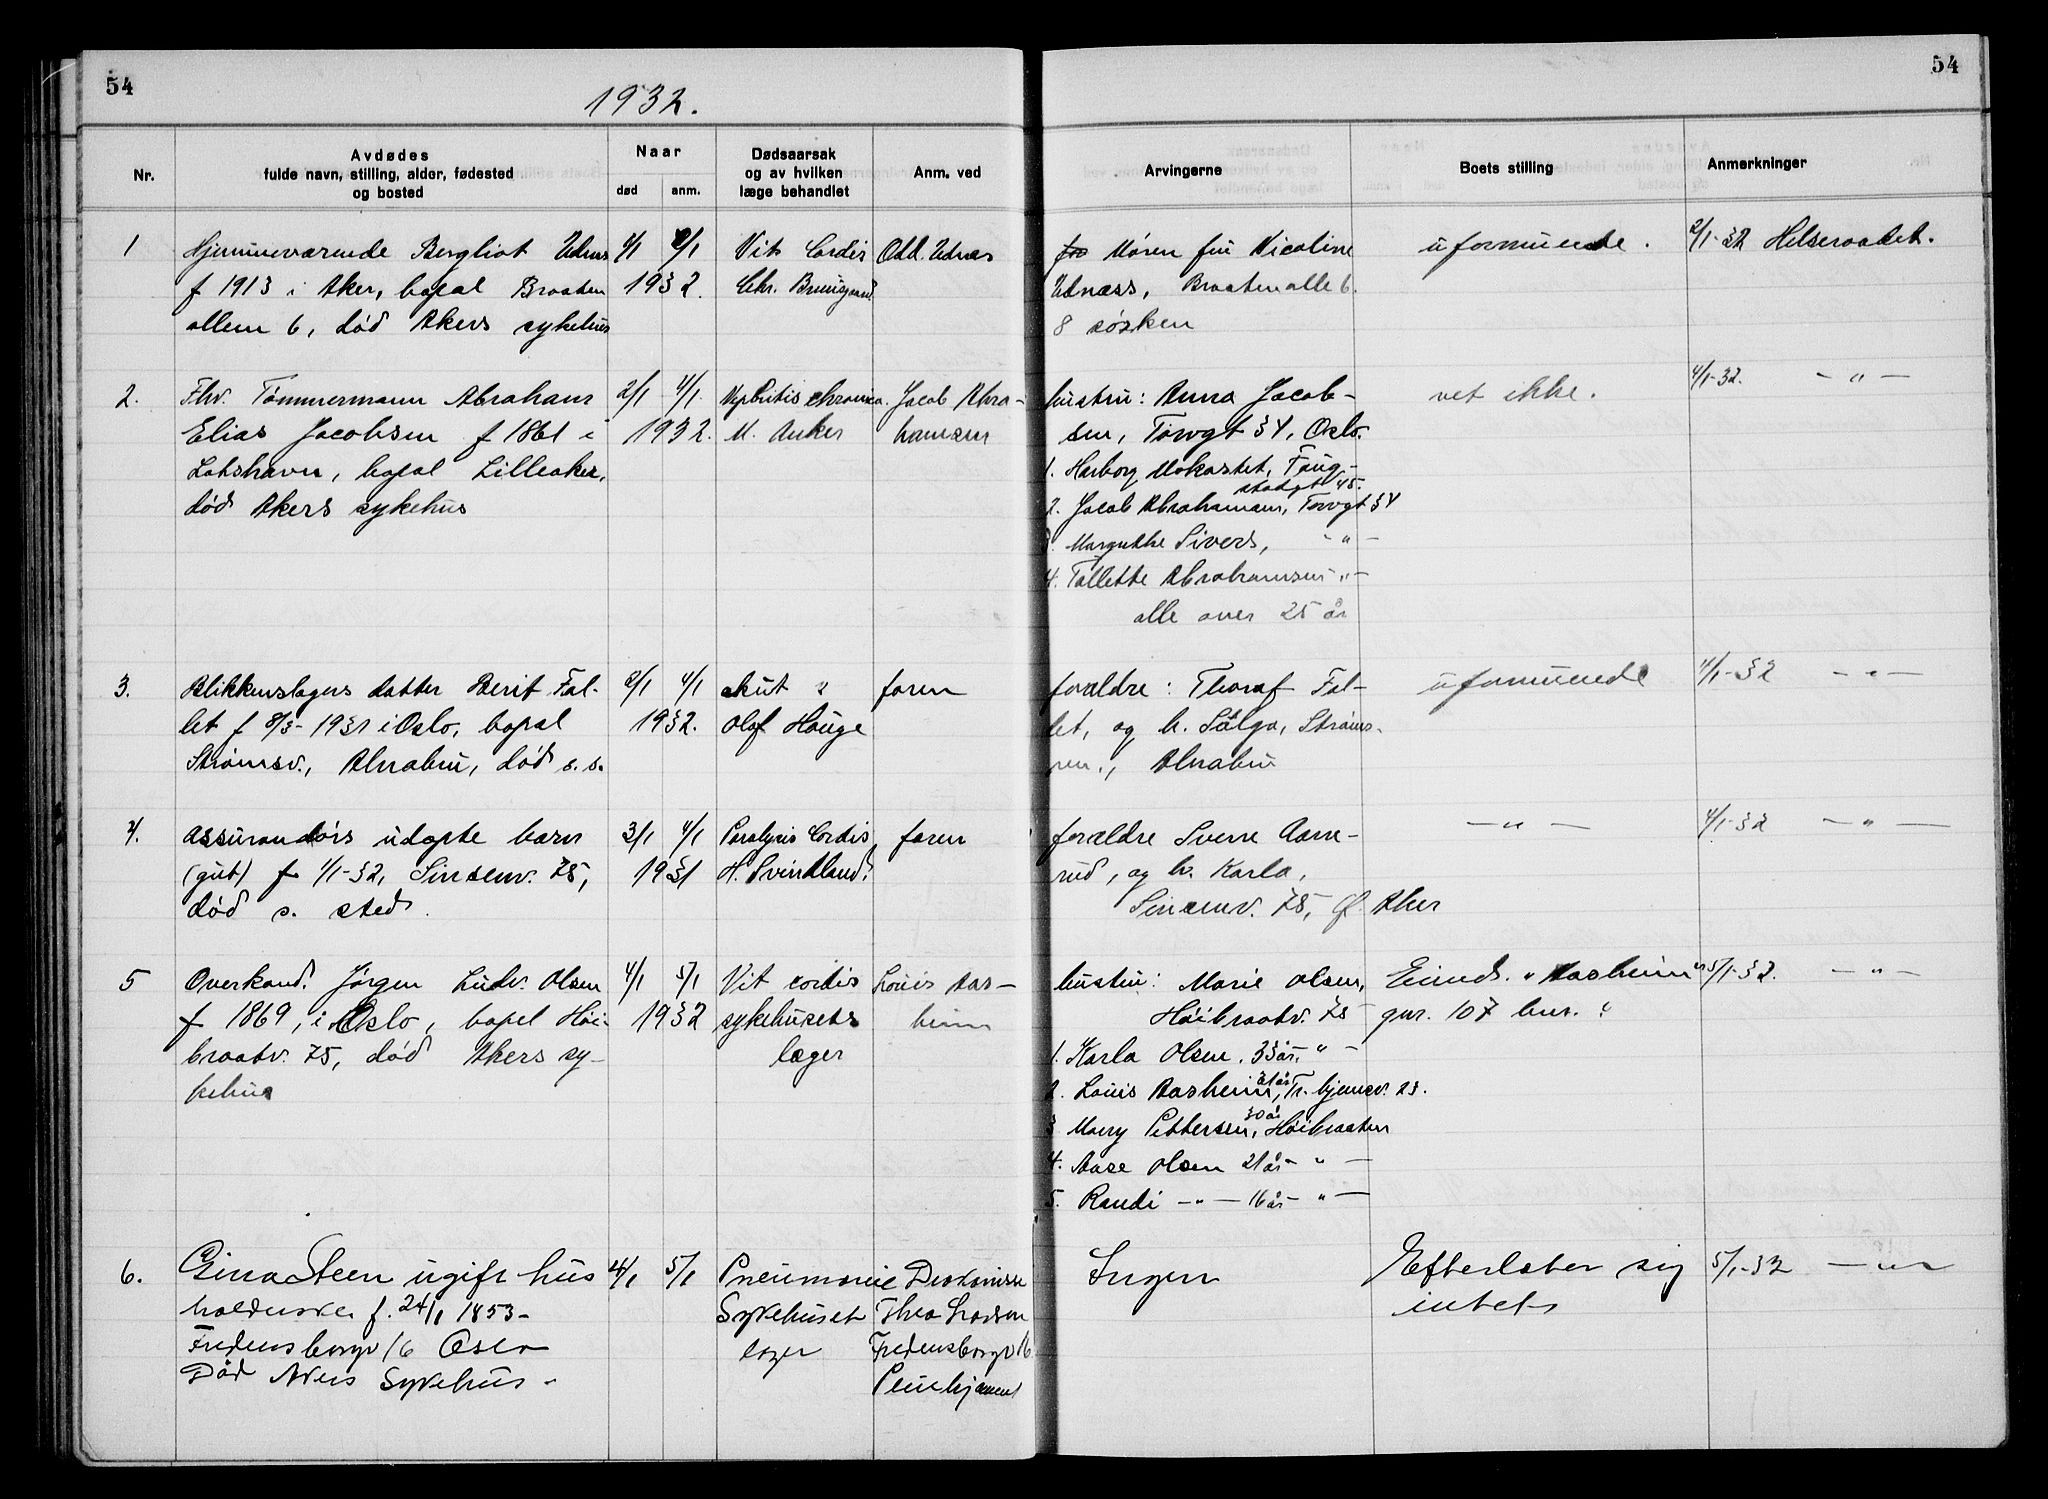 54
54
1932.
Nr.
Avdødes
fulde navn, stilling, alder, fødested
og bosted
Naar
død
anm.
Dødsaarsak
og av hvilken
læge behandlet
Anm. ved
Arvingerne
Boets stilling
Anmerkninger
1
Hjemmeværende Bergliot Udnæs
f 1913 i Aker, bopæl Braaten
alleen 6, død Akers sykehus
1/1 2/1
1932.
Vit. Cordis
Chr.
Odd. Udnæs
Moren fru Nicoline
Udnæss, Braatenalle 6.
8 søsken
uformuende.
2/1-32 Helseraadet.
2.
Fhv. Tømmermann Abraham
Elias Jacobsen f 1861 i
bopæl Lilleaker,
død Akers sykehus
2/1 4/1
1932.
Nephritis chronica.
M. Anker
Jacob Abra-
hamsen
hustru: Anna Jacob-
sen, Torvgt 34, Oslo.
1. Harborg
2. Jacob Abrahamsen, Torvgt 34
3. Margrethe Sivers, - " -
4. Tallette Abrahamsen - " -
alle over 25 år
vet ikke.
4/1-32. - " -
3.
Blikkenslagers datter Berit Fal-
let f 8/3-1931 i Oslo, bopæl
Strømsv., Alnabru, død s. s.
2/1 4/1
1932.
akut
Olaf Hauge
faren
forældre: Thoraf Fal-
let, og h. Sålga, Strøms-
vn., Alnabru
uformuende
4/1-32 - " -
4.
Assurandørs udøpte barn
(gut) f 1/1-32, Sinsenv. 75,
død s. sted.
3/1 4/1
1931
Paralysis Cordis
H. Svindland.
faren
forældre Sverre Aame-
rud, og h. Karla,
Sinsenv. 75, Ø. Aker
- " -
4/1-32 - " -
5
Overkond. Jørgen Ludv. Olsen
f 1869, i Oslo, bopæl Høi-
braatv. 75, død Akers sy-
kehus
4/1 5/1
1932
Vit cordis
sykehusets
læger
Louis Aas-
heim
hustru: Marie Olsen,
Høibraatv. 75
1. Karla Olsen, 33 år, " -
2. Louis Aasheim, 31 år, Tr. hjemsv. 23.
3 Mary Pettersen, 30 år Høibraaten
4. Aase Olsen 21 år - " -
5. Randi - " - 16 år - " -
Eiend. "Aasheim"
gnr. 107 bnr. ?
5/1-32. - " -
6.
Gina Steen ugift hus
holderske f. 24/1 1853-
Fredensborgv 16 Oslo
Død Akers Sykehus.
4/1 5/1
Pneumonie
Sykehuset
læger
Diakonisse
Thea
Fredensborgv 16
Pleiehjemmet
Ingen
Efterlater sig
intet
5/1-32 - " -